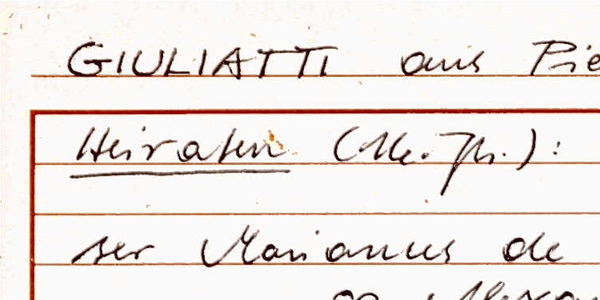 GIULIATTI aus Pie
Heiraten (Me. Th.):
ser Marianus de